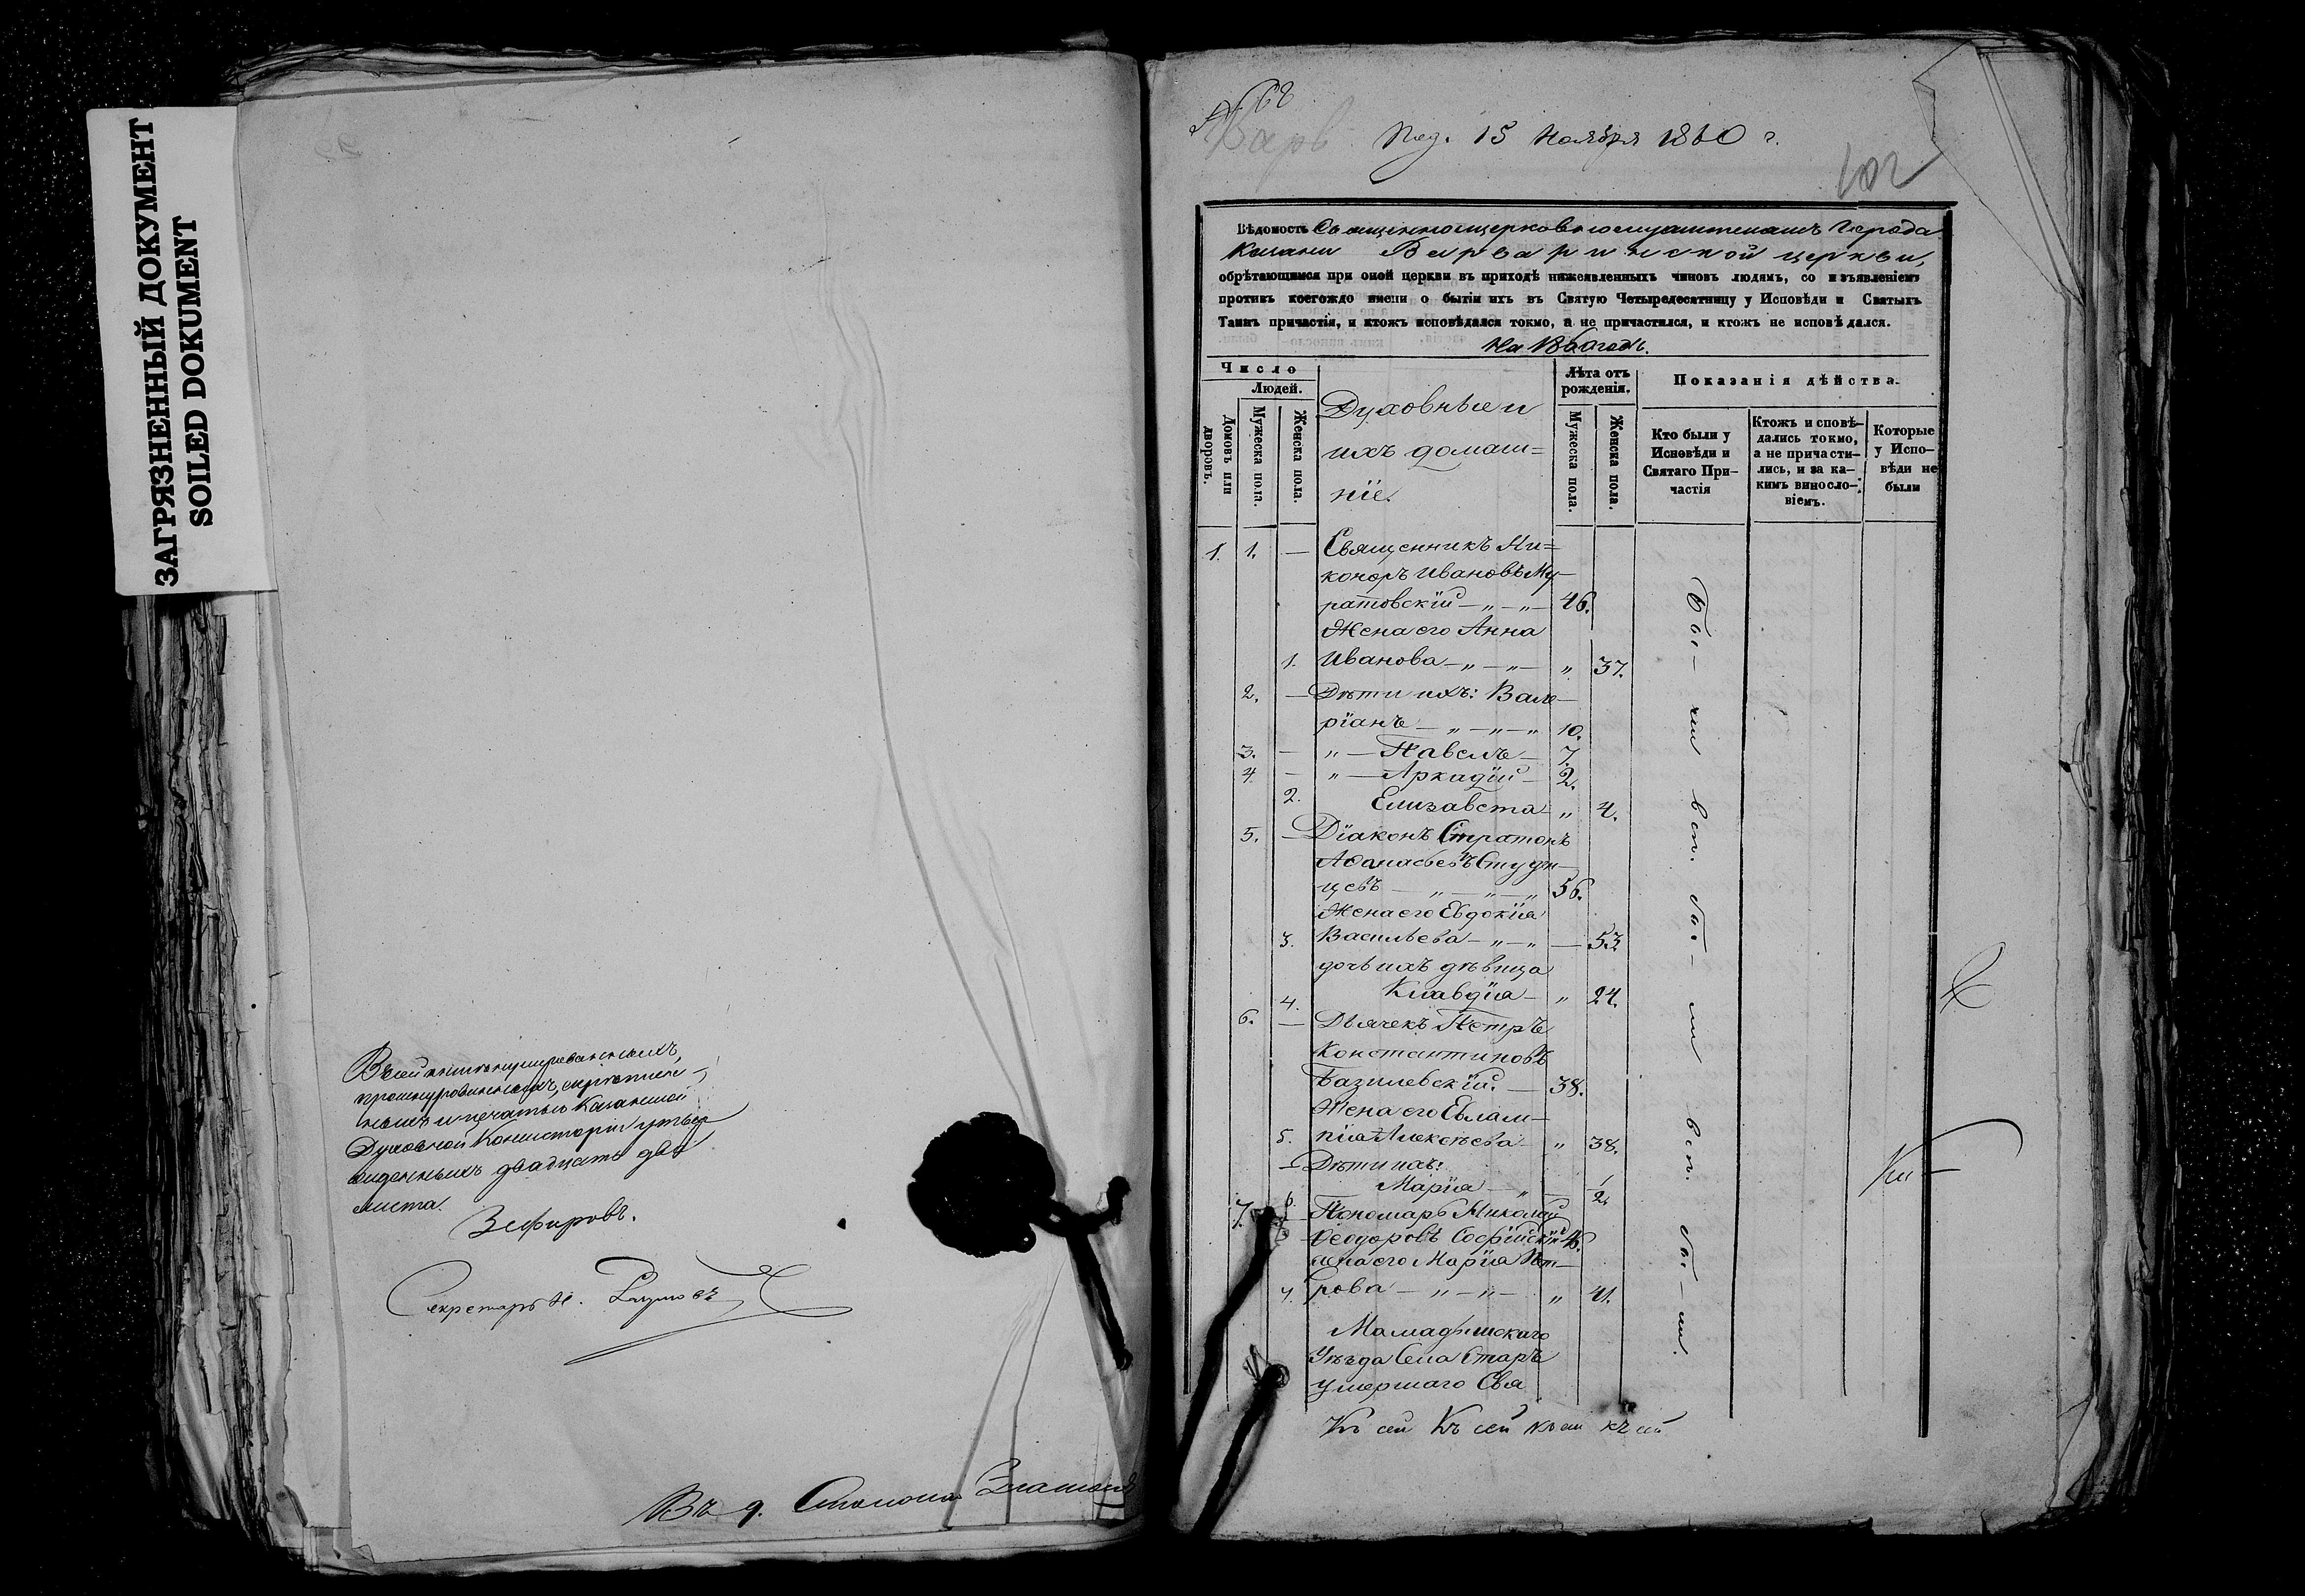 ЗАГРЯЗНЕННЫЙ ДОКУМЕНТ
SOILED DOKUMENT
Въ сей книгѣ нумерованныхъ,
прошнурованныхъ, скрѣплен-
ныхъ и печатью Казанской
Духовной Консисторіи утвер
жденныхъ двадцать два
листа.
Зефировъ.
Секретарь Н.
Въ д.
№ 68
Варв
Под. 15 Ноября 1860 г.
102
Вѣдомость Священноцерковнослужителямъ Города
Казани Варваринской церкви,
обрѣтающимся при оной церкви въ приходѣ нижеявленныхъ чиновъ людямъ, со изъявленіемъ
противъ коегождо имени о бытіи ихъ въ Святую Четыредесятницу у Исповѣди и Святыхъ
Таинъ причастія, и ктожъ исповѣдался токмо, а не причастился, и ктожъ не исповѣдался.
На 1860 годъ.
Число
Людей.
Домовъ или дворовъ.
Мужеска пола.
Женска пола.
Духовные и
ихъ домаш=
ніе.
Лѣта отъ рожденія.
Мужеска пола.
Женска пола.
Показанія дѣйства.
Кто были у Исповѣди и Святаго При-частія
Ктожъ исповѣ-дались токмо, а не причасти-лись, и за ка-кимъ виносло-віемъ.
Которые у Испо-вѣди не были
1. 1. — Священникъ Ни=
каноръ Ивановъ Му-
ратовскій — „ — „ — 46.
Жена его Анна
1. Иванова — „ — „ — „ 37.
2. — Дѣти ихъ: Вале-
ріанъ — „ — „ — „ 10.
3. — „ — Павелъ — 7.
4. — „ — Аркадій — 2.
2. Елизавета — „ 4.
5. — Діаконъ Стратонъ
Аѳанасьевъ Студен-
цевъ — „ — „ — „ 56.
Жена его Евдокія
3. Васильева — „ — „ — 53.
дочь ихъ дѣвица
4. Клавдія — „ 24.
6. — Дьячекъ Петръ
Константиновъ
Базилевскій. — 38.
Жена его Евлам-
5. пія Алексѣева — „ 38.
— Дѣти ихъ:
6. Марія — „ — 1/2
7. — Пономарь Николай
Ѳеодоровъ Софійскій 46.
жена его Марія Пет-
7. рова — „ — „ — „ 41.
Мамадышскаго
Уѣзда Села Старъ
умершаго Свя
Бы-ли исп. бы-ли исп. бы-ли.
Къ сей Къ сей Къ сей къ сей